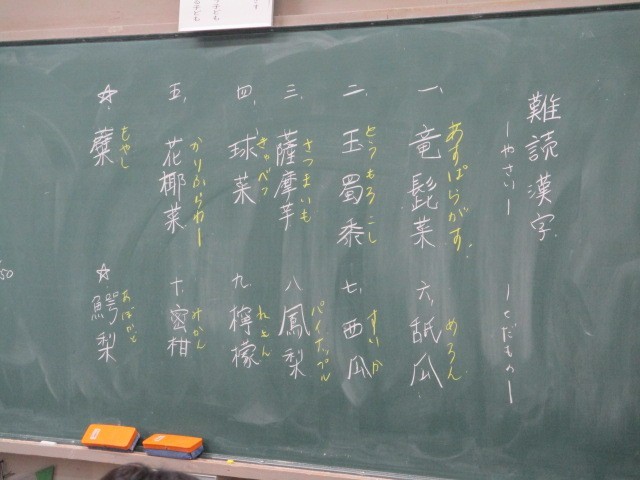 難読漢字
ーやさいー
ーくだものー
一、竜髭菜
あすぱらがす
六、舐瓜
めろん
二、玉蜀黍
とうもろこし
七、西瓜
すいか
三、薩摩芋
さつまいも
八、鳳梨
パイナップル
四、球菜
きゃべつ
九、檸檬
れもん
五、花椰菜
かりふらわー
十、蜜柑
みかん
☆蘖
もやし
☆鰐梨
あぼかど
50